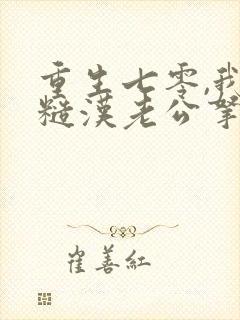 重生七零,我
糙漢老公寧
崔善紅